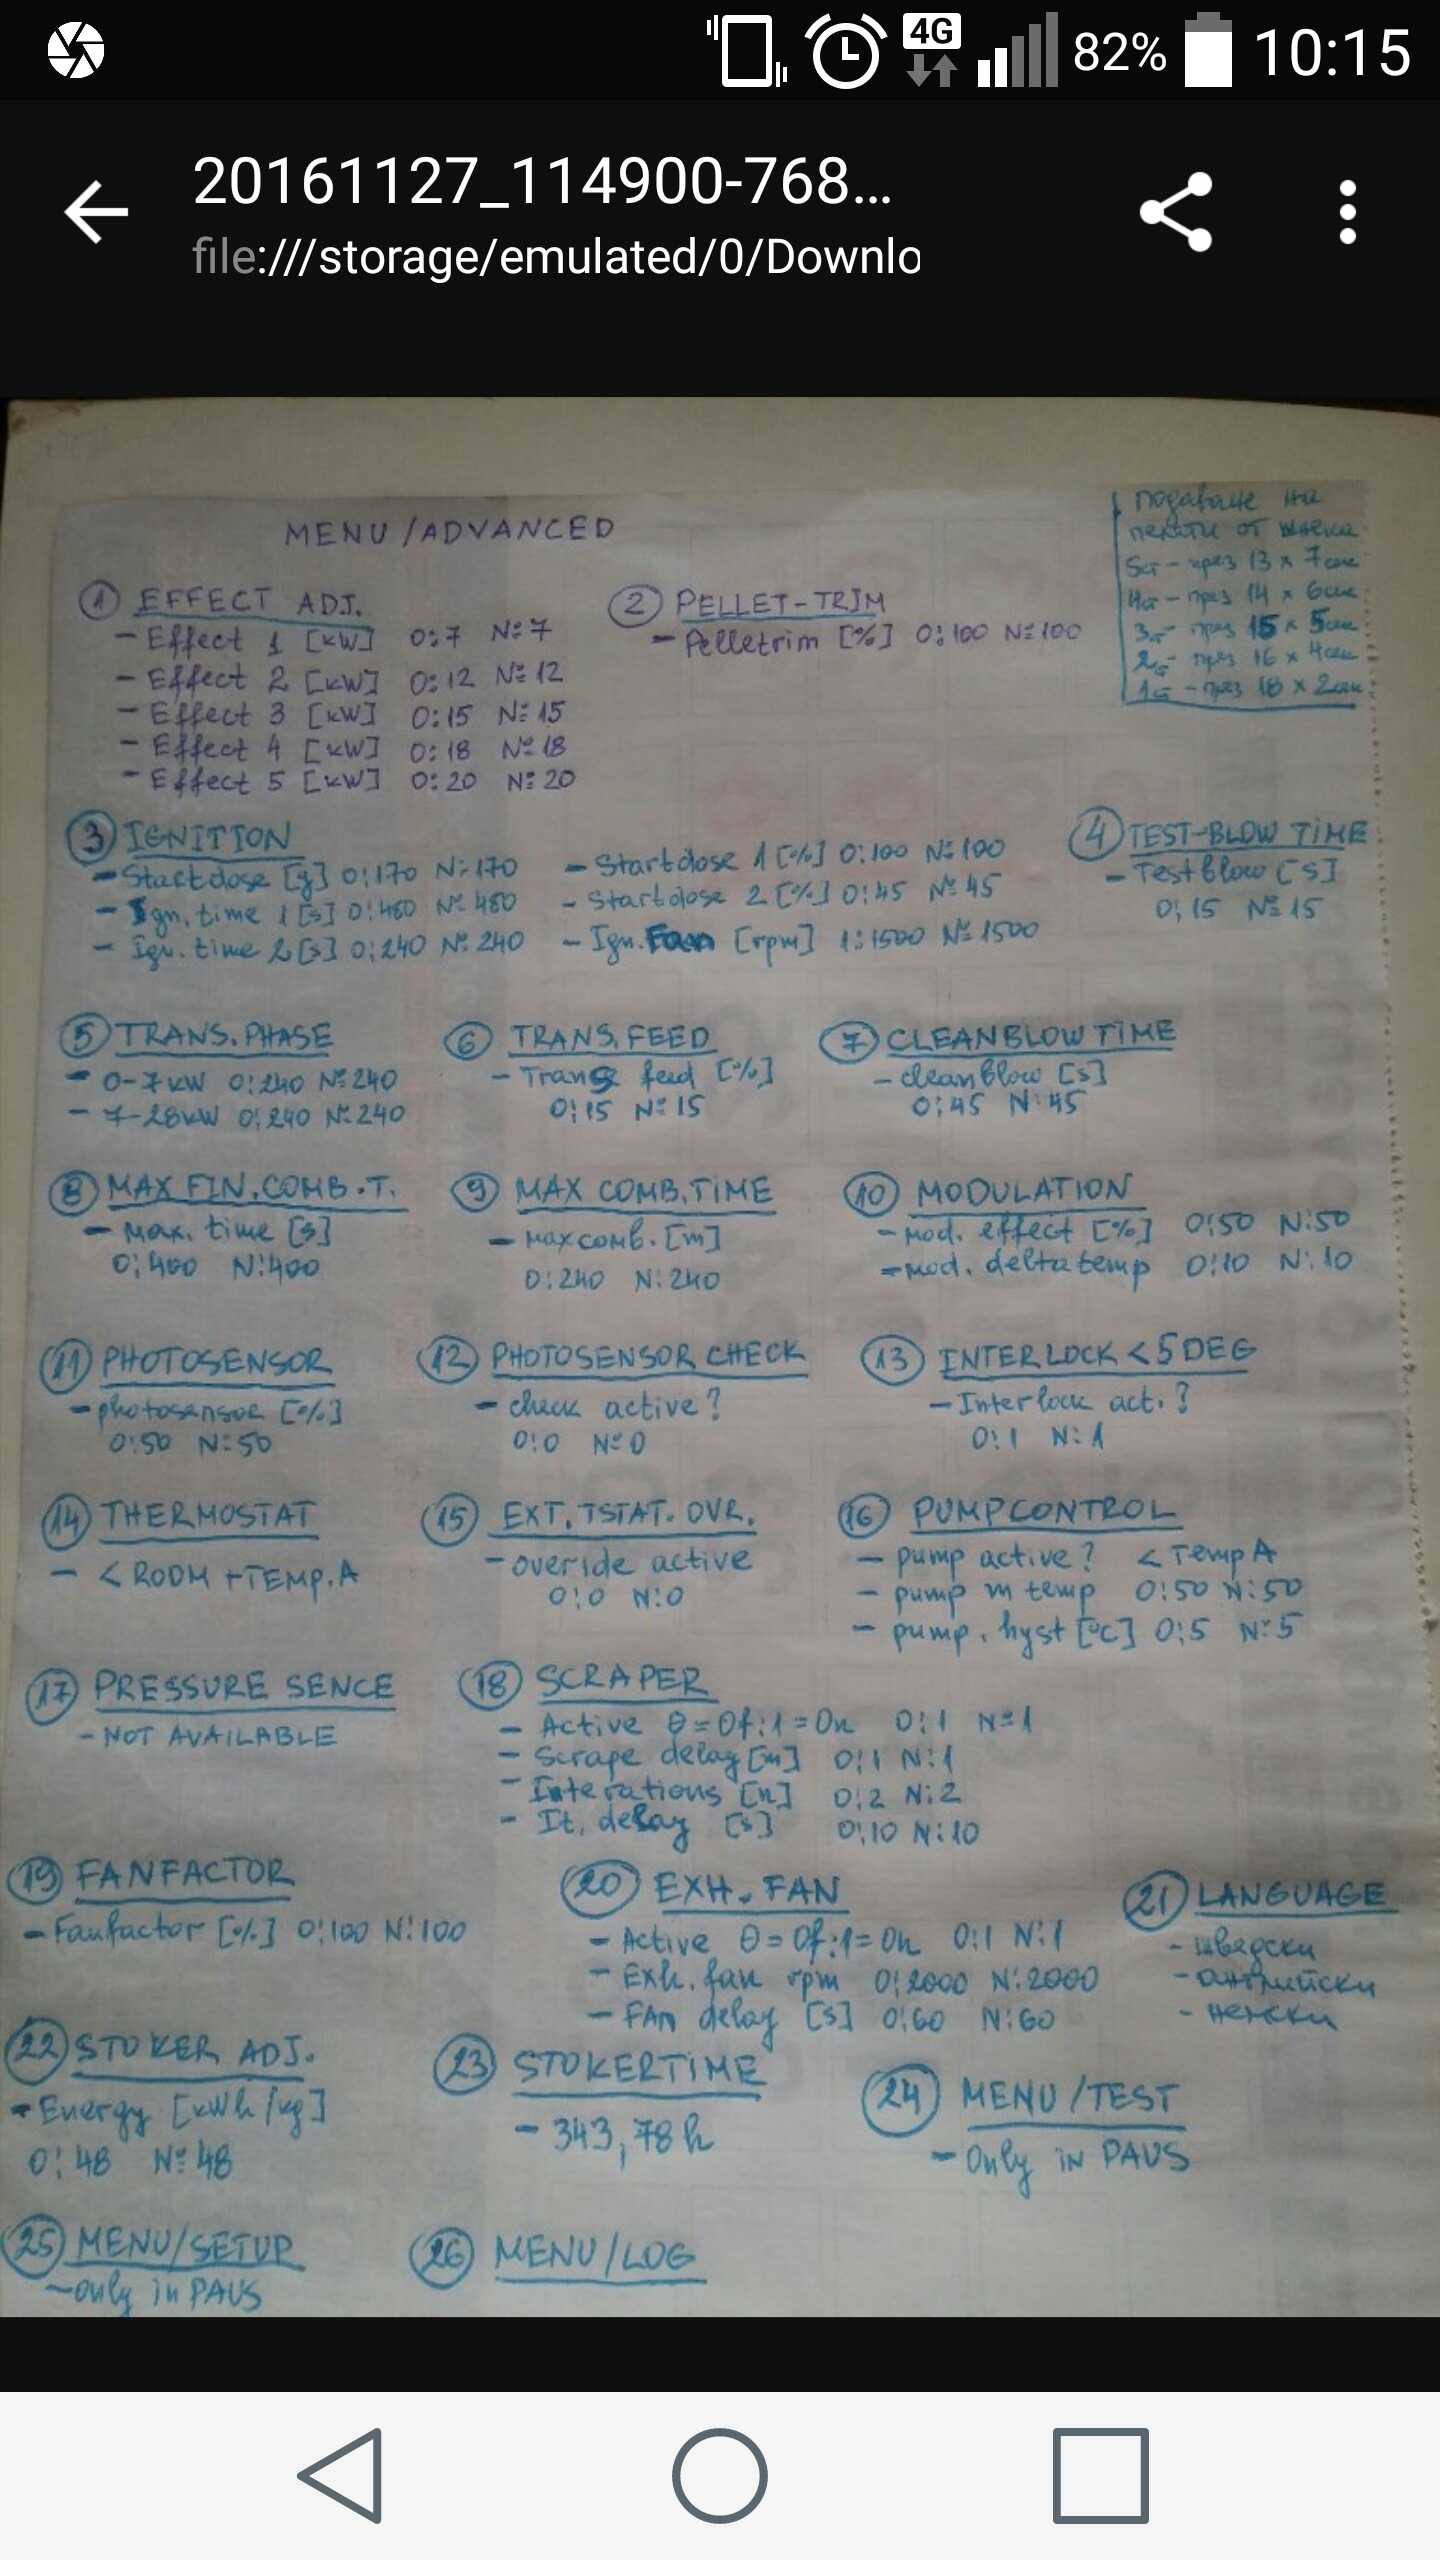 4G 82% 10:15
20161127_114900-768…
file:///storage/emulated/0/Downlo
MENU/ADVANCED
подаване на
пелети от шнека
5ст - през 13 x 7сек
4ст - през 14 x 6сек
3ст - през 15 x 5сек
2ст - през 16 x 4сек
1ст - през 18 x 2сек
1 EFFECT ADJ.
- Effect 1 [kW] O:7 N:7
- Effect 2 [kW] O:12 N:12
- Effect 3 [kW] O:15 N:15
- Effect 4 [kW] O:18 N:18
- Effect 5 [kW] O:20 N:20
2 PELLET-TRIM
- Pelletrim [%] O:100 N:100
3 IGNITION
- Startdose [g] O:170 N:170
- Ign. time 1 [s] O:480 N:480
- Ign. time 2 [s] O:240 N:240
- Startdose 1 [%] O:100 N:100
- Startdose 2 [%] O:45 N:45
- Ign. Fan [rpm] 1:1500 N:1500
4 TEST-BLOW TIME
- Testblow [s]
O:15 N:15
5 TRANS. PHASE
- 0-7kW O:240 N:240
- 7-28kW O:240 N:240
6 TRANS. FEED
- Trans feed [%]
O:15 N:15
7 CLEANBLOW TIME
- cleanblow [s]
O:45 N:45
8 MAX FIN. COMB. T.
- max. time [s]
O:400 N:400
9 MAX COMB. TIME
- maxcomb. [m]
O:240 N:240
10 MODULATION
- mod. effect [%] O:50 N:50
- mod. deltatemp O:10 N:10
11 PHOTOSENSOR
- photosensor [%]
O:50 N:50
12 PHOTOSENSOR CHECK
- check active?
O:0 N:0
13 INTERLOCK < 5 DEG
- Interlock act.?
O:1 N:1
14 THERMOSTAT
- < ROOM + TEMP. A
15 EXT. TSTAT. OVR.
- override active
O:0 N:0
16 PUMPCONTROL
- pump active? < Temp A
- pump m temp O:50 N:50
- pump. hyst [°C] O:5 N:5
17 PRESSURE SENCE
- NOT AVAILABLE
18 SCRAPER
- Active 0=Of:1=On O:1 N:1
- Scrape delay [m] O:1 N:1
- Interations [n] O:2 N:2
- It. delay [s] O:10 N:10
19 FANFACTOR
- Fanfactor [%] O:100 N:100
20 EXH. FAN
- Active 0=Of:1=On O:1 N:1
- Exh. fan rpm O:2000 N:2000
- FAn delay [s] O:60 N:60
21 LANGUAGE
- шведски
- английски
- немски
22 STOKER ADJ.
- Energy [kWh/kg]
O:48 N:48
23 STOKERTIME
- 343,78h
24 MENU/TEST
- Only in PAUS
25 MENU/SETUP
- Only in PAUS
26 MENU/LOG